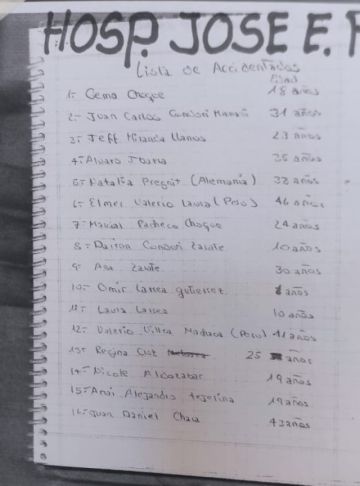 HOSP. JOSE E. P
Lista de Accidentados
Edad
1.- Gema Choque 18 años
2.- Juan Carlos Condori Mamani 31 años
3.- Jeff Miranda Llanos 23 años
4.- Alvaro
5.- Natalia Pregnt (Alemania) 32 años
6.- Elmer Valerio Laura (Peru) 46 años
7.- Marcial Pacheco Choque 24 años
8.- Dairon Condori Zarate 10 años
9.- Ana Zarate 30 años
10.- Omir Larrea gutierrez 8 años
11.- Laura Larrea 10 años
12.- Valerio Villca Maduca (Peru)
13.- Regina 25 años
14.- Nicole 19 años
15.- Anai Alejandra tejerina 19 años
16.- Juan Daniel 43 años